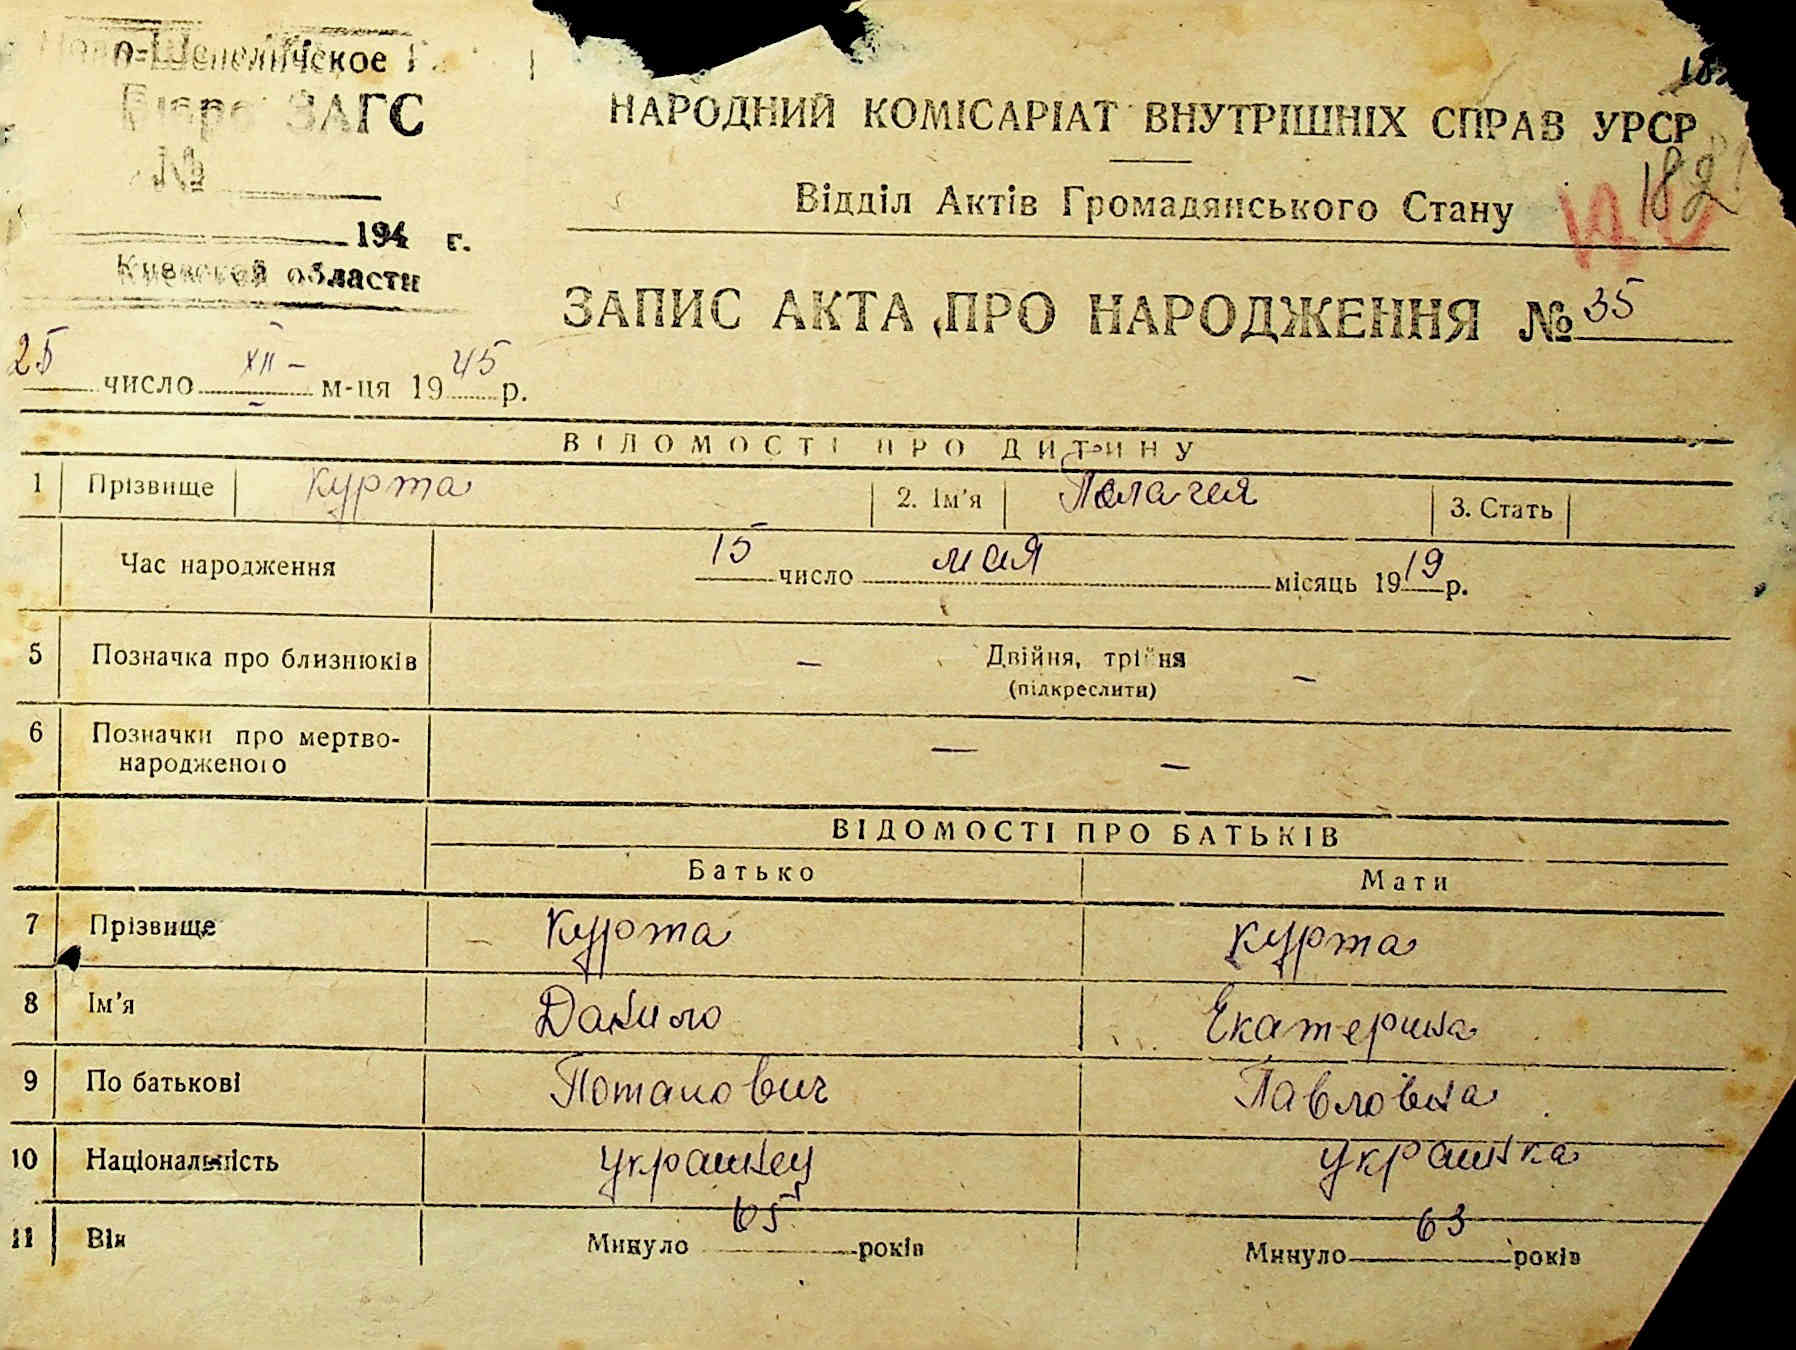 Ново-Шепеличское
Бюро ЗАГС
№
194 г.
Киевской области
НАРОДНИЙ КОМІСАРІАТ ВНУТРІШНІХ СПРАВ УРСР
182
Відділ Актів Громадянського Стану
ЗАПИС АКТА ПРО НАРОДЖЕННЯ № 35
25 число XII - м-ця 1945 р.
ВІДОМОСТІ ПРО ДИТИНУ
1 Прізвище Курта 2. Ім'я Пелагея 3. Стать
Час народження 15 число мая місяць 1919 р.
5 Позначка про близнюків — Двійня, трійня —
(підкреслити)
6 Позначки про мертво-
народженого — —
ВІДОМОСТІ ПРО БАТЬКІВ
Батько Мати
7 Прізвище Курта Курта
8 Ім'я Данило Екатерина
9 По батькові Потапович Павловна
10 Національність украинец украинка
11 Вік Минуло 65 років Минуло 63 років